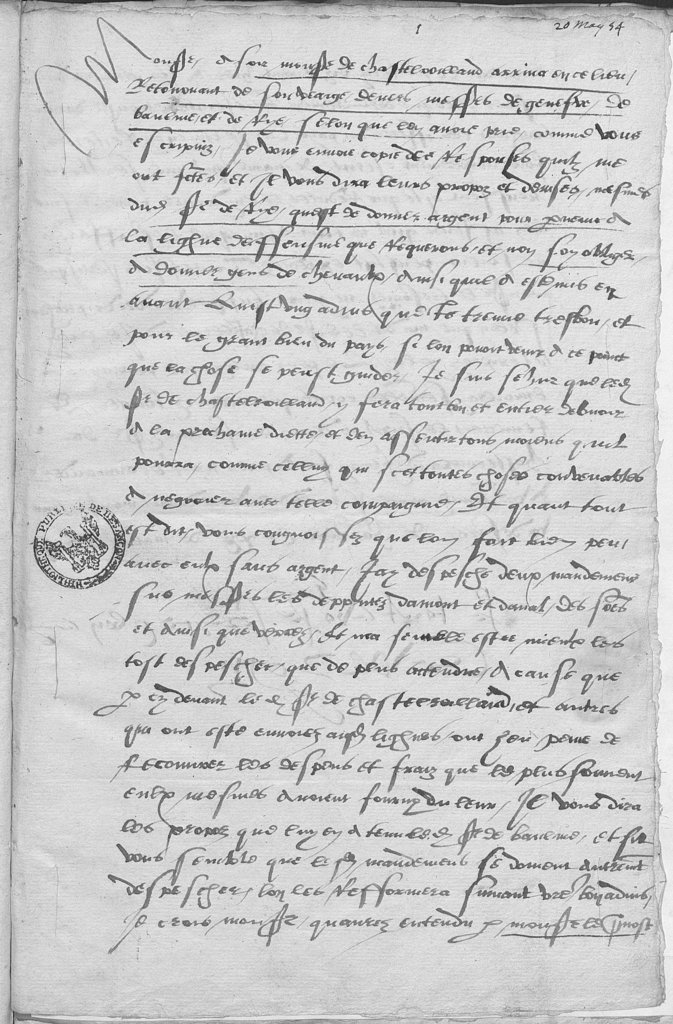 1
20 May 54
Monsr, a soir monsr de chastelroilland arriva en ce lieu,
Retournant de son voiaige devers messrs de genefve, de
baulme, et de Rye, selon que len avoie prie, comme vous
escripviz, Je vous envoie copie des Responses quilz me
ont fctes, et Il vous dira leurs propoz et devises, mesmes
dud sr de Rye, quest de donner argent pour parvenir a
la lighue deffensive que Requerons, et non soy obliger
a donner gens de chevaulx, Ainsi quil a este mis en
avant Quest ung advis que Je treuve tresbon, et
pour le grant bien du pays, si lon povoit venir a ce point
que la chose se peust guider, Je suis sehur que led
sr de chastelroilland y fera tout bon et entier debvoir
a la prochaine diette, et den assentir tous moiens quil
pourra, comme celluy qui scet toutes choses convenables
a negocier avec telle compaignie, Et quant tout
est dit, vous congnoissez que lon fait bien peu
avec eulx sans argent, Jay despesche deux mandemens
sur messrs les depputez damont et daval, des so[mm]es
et ainsi que verrez, Et ma semble estre mieulx les
tost despescher, que de plus actendre, A cause que
par cy devant led sr de chastelroilland, et autres
qui ont este envoiez ausd lighues ont heu peine de
Recouvrer les despens et fraiz que le plus souvent
eulx mesmes avoient fourny du leur, Il vous dira
les propoz que luy en a tenu led sr de baulme, et sil
vous semble que lesd mandemens se doivent autrement
despescher, lon les Refformera suivant vre bon advis,
Je crois monsr, quaurez entendu par monsr le prevost